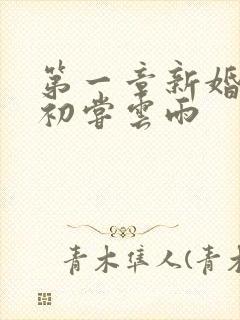 第一章新婚
初嘗雲雨
青木隼人(青木